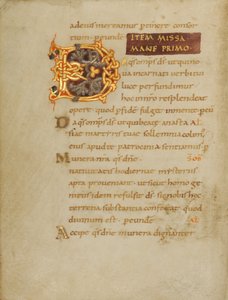 adeius mereamur peruenire consor
tium per eundē
ITEM MISSA
MANE PRIMO
DA qs omps ds ut qui noua
ua incarnati uerbi tui
luce perfundimur
hoc in nro resplendeat
opere quod p fidē fulget in mente per
Da qs omps ds ut qui beatę anastasię
martyris tuę sollemnia colim
eius apud te patrocinia sentiamus p
Munera nra qs dne
natiuitatis hodiernę mysteriis
apta proueniant ut sicut homo ge
nitus idem refulsit ds sic nobis hoc
terrena substantia conferat quod
diuinum est per eundē
Accipe qs dne munera dignanter